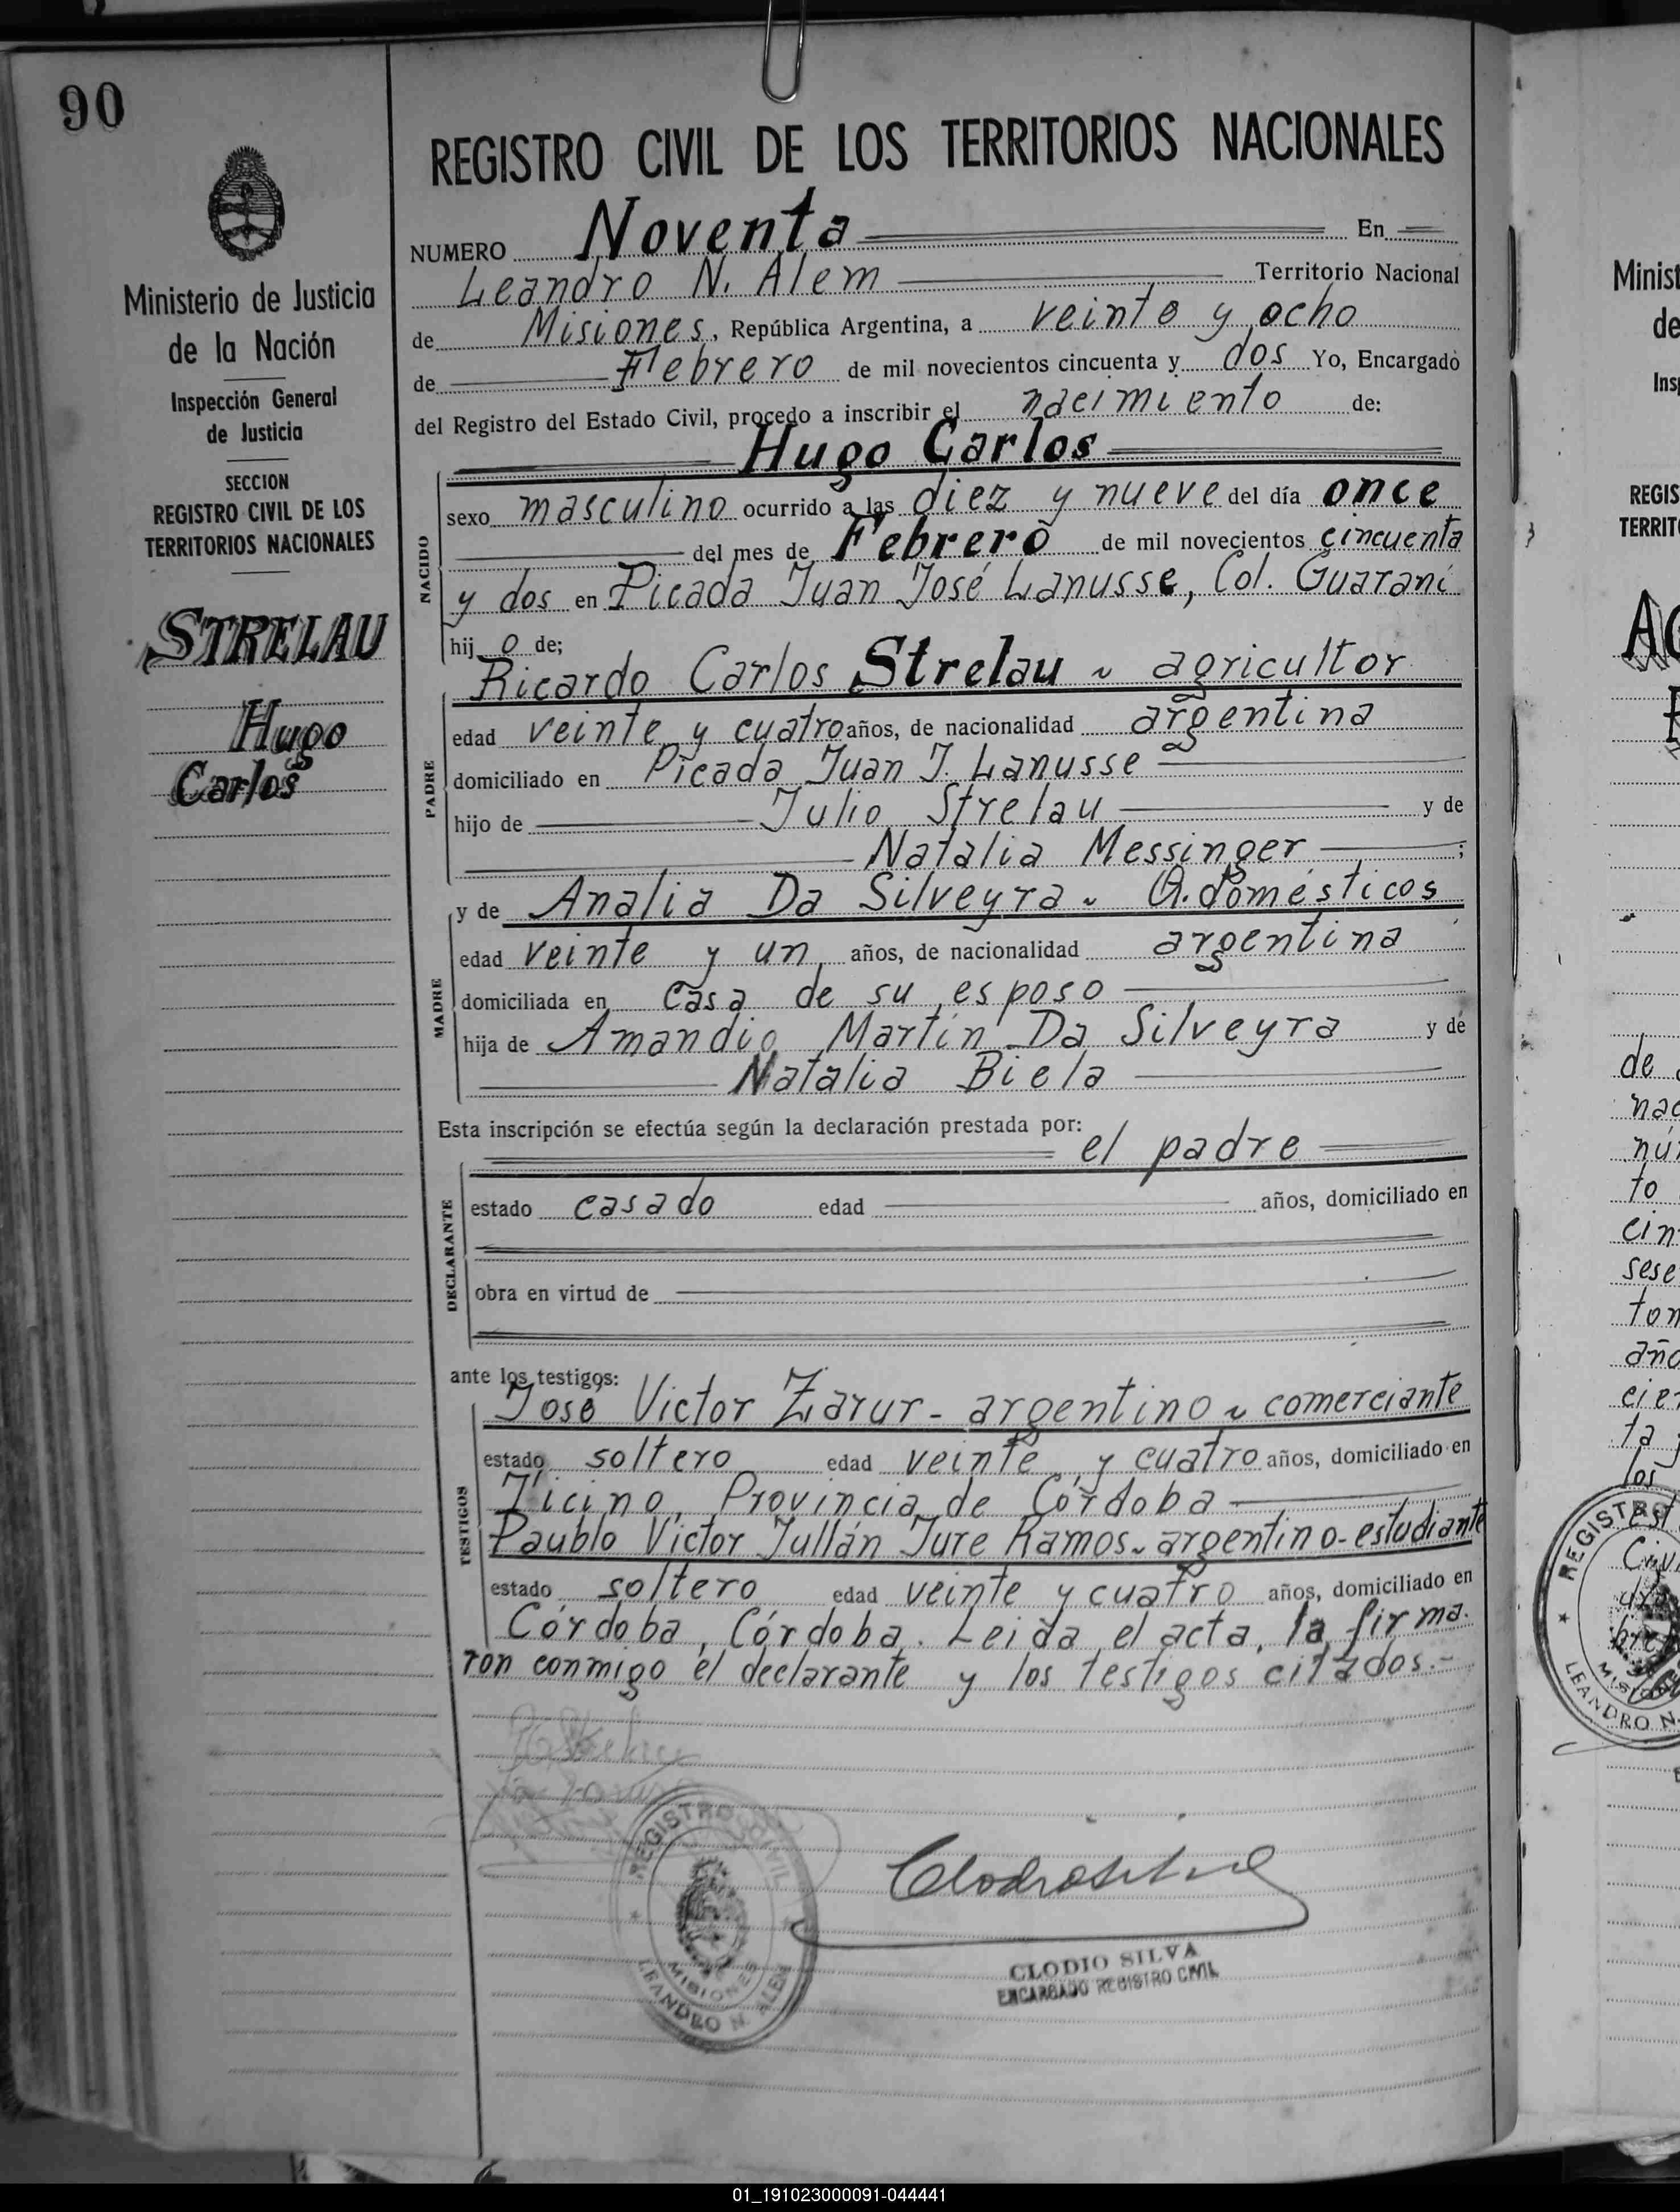 90
Ministerio de Justicia
de la Nación
Inspección General
de Justicia
SECCION
REGISTRO CIVIL DE LOS
TERRITORIOS NACIONALES
STRELAU
Hugo
Carlos
REGISTRO CIVIL DE LOS TERRITORIOS NACIONALES
NUMERO Noventa En
Leandro N. Alem Territorio Nacional
de Misiones, República Argentina, a veinte y ocho
de Febrero de mil novecientos cincuenta y dos Yo, Encargado
del Registro del Estado Civil, procedo a inscribir el nacimiento de:
Hugo Carlos
NACIDO
sexo masculino ocurrido a las diez y nueve del día once
del mes de Febrero de mil novecientos cincuenta
y dos en Picada Juan José Lanusse, Col. Guaraní
hij o de;
Ricardo Carlos Strelau ~ agricultor
PADRE
edad veinte y cuatro años, de nacionalidad argentina
domiciliado en Picada Juan J. Lanusse
hijo de Julio Strelau y de
Natalia Messinger ;
y de Analia Da Silveyra ~ Q. domésticos
MADRE
edad veinte y un años, de nacionalidad argentina
domiciliada en casa de su esposo
hija de Amandio Martín Da Silveyra y de
Natalia Biela
Esta inscripción se efectúa según la declaración prestada por:
el padre
DECLARANTE
estado casado edad años, domiciliado en
obra en virtud de
ante los testigos:
TESTIGOS
José Victor Zarur - argentino ~ comerciante
estado soltero edad veinte y cuatro años, domiciliado en
Ticino, Provincia de Córdoba
Paublo Victor Jullán Jure Ramos ~ argentino - estudiante
estado soltero edad veinte y cuatro años, domiciliado en
Córdoba, Córdoba. Leida el acta, la firma-
ron conmigo el declarante y los testigos citados.-
REGISTRO CIVIL
MISIONES
LEANDRO N. ALEM
CLODIO SILVA
ENCARGADO REGISTRO CIVIL
Minist
de
Ins
REGIS
TERRIT
de
nac
nú
to
cin
sese
ton
año
cien
ta
los
REGISTRO
LEANDRO N.
01_191023000091-044441